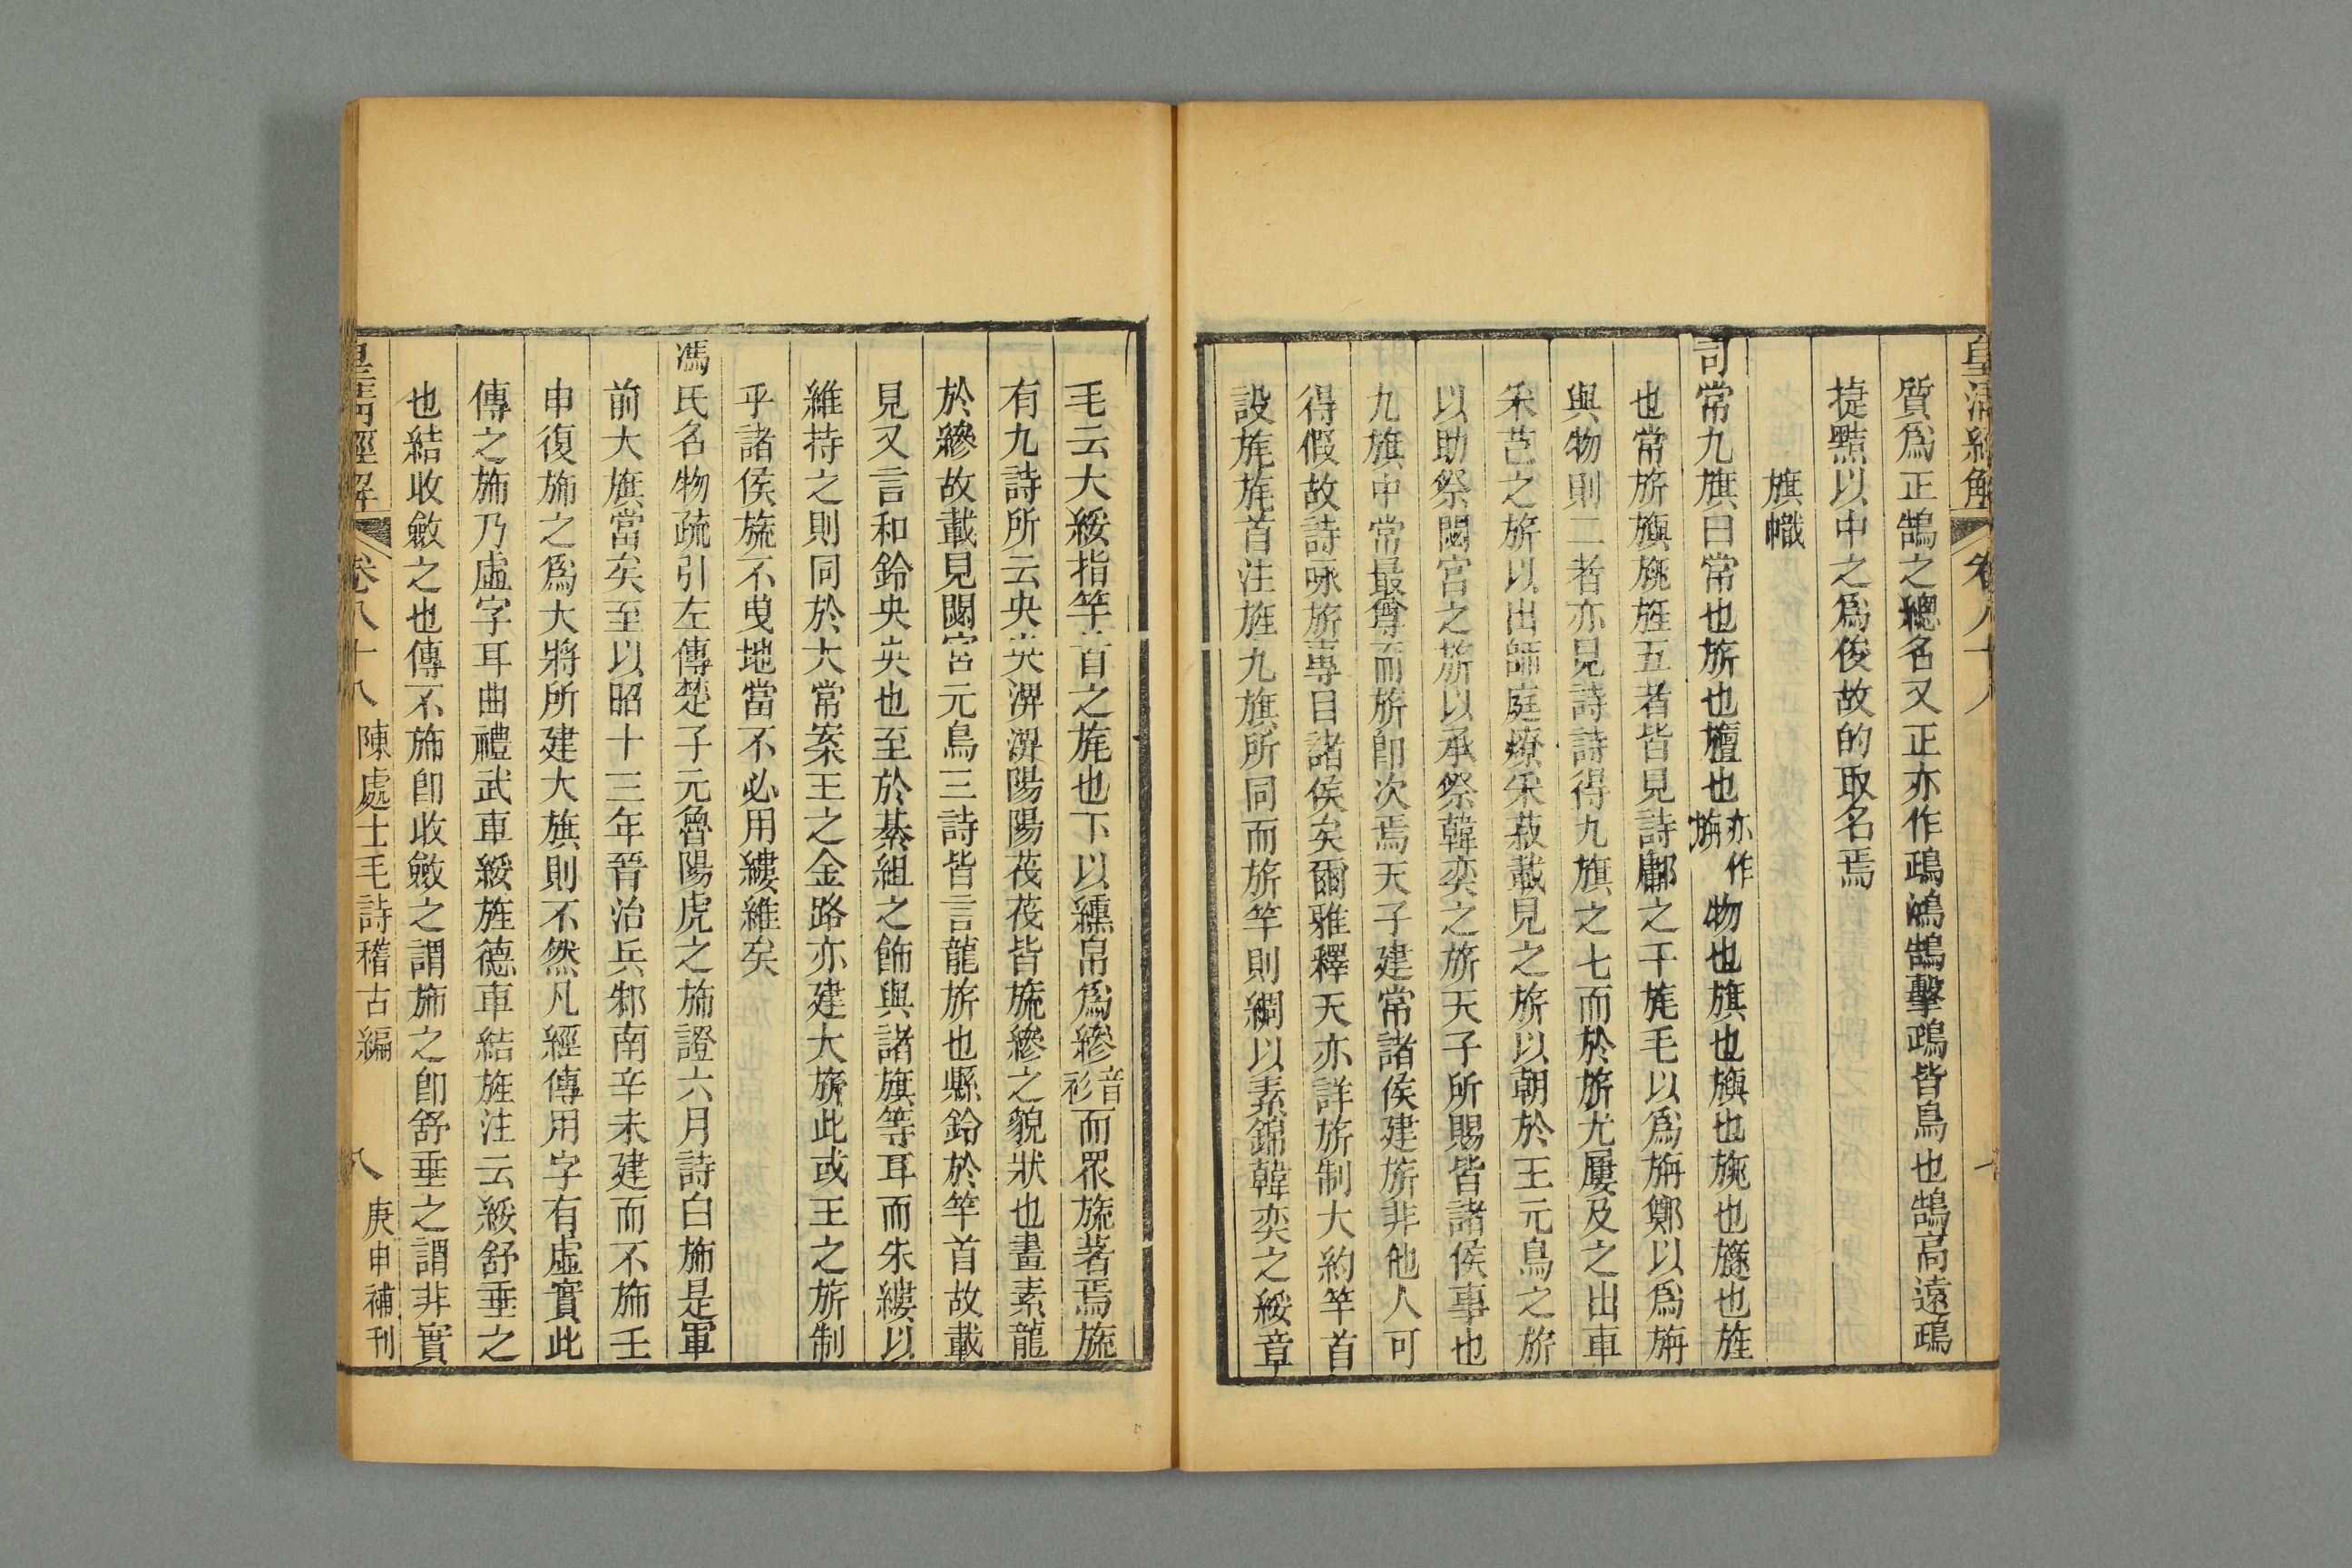 皇清經解 卷八十八
質爲正鵠之總名又正亦作鴊鴻鵠擊鴊皆鳥也鵠高遠鴊
捷黠以中之爲俊故的取名焉
旗幟
司常九旗曰常也旂也旜也亦作旃物也旗也旟也旐也旞也旌
也常旂旟旐旌五者皆見詩鄘之干旄毛以爲旃鄭以爲旃
與物則二者亦見詩詩得九旗之七而於旂尤屢及之出車
采芑之旂以出師庭燎采菽載見之旂以朝於王元鳥之旂
以助祭閟宮之旂以承祭韓奕之旂天子所賜皆諸侯事也
九旗中常最尊而旂卽次焉天子建常諸侯建旂非他人可
得假故詩咏旂專目諸侯矣爾雅釋天亦詳旂制大約竿首
設旄旄首注旌九旗所同而旂竿則綢以素錦韓奕之綏章
毛云大綏指竿首之旄也下以纁帛爲縿音衫而眾旒著焉旒
有九詩所云央央淠淠陽陽茷茷皆旒縿之貌狀也畫素龍
於縿故載見閟宮元鳥三詩皆言龍旂也縣鈴於竿首故載
見又言和鈴央央也至於綦組之飾與諸旗等耳而朱縷以
維持之則同於大常案王之金路亦建大旂此或王之旂制
乎諸侯旒不曳地當不必用縷維矣
馮氏名物疏引左傳楚子元魯陽虎之旆證六月詩白旆是軍
前大旗當矣至以昭十三年晉治兵邾南辛未建而不旆壬
申復旆之爲大將所建大旗則不然凡經傳用字有虛實此
傳之旆乃虛字耳曲禮武車綏旌德車結旌注云綏舒垂之
也結收斂之也傳不旆卽收斂之謂旆之卽舒垂之謂非實
皇清經解 卷八十八 陳處士毛詩稽古編 八 庚申補刊